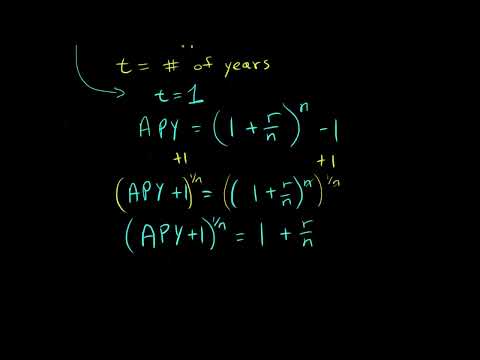 t = # of years
t = 1
APY = (1 + r/n)^n - 1
+1 +1
(APY + 1)^1/n = ((1 + r/n)^n)^1/n
(APY + 1)^1/n = 1 + r/n